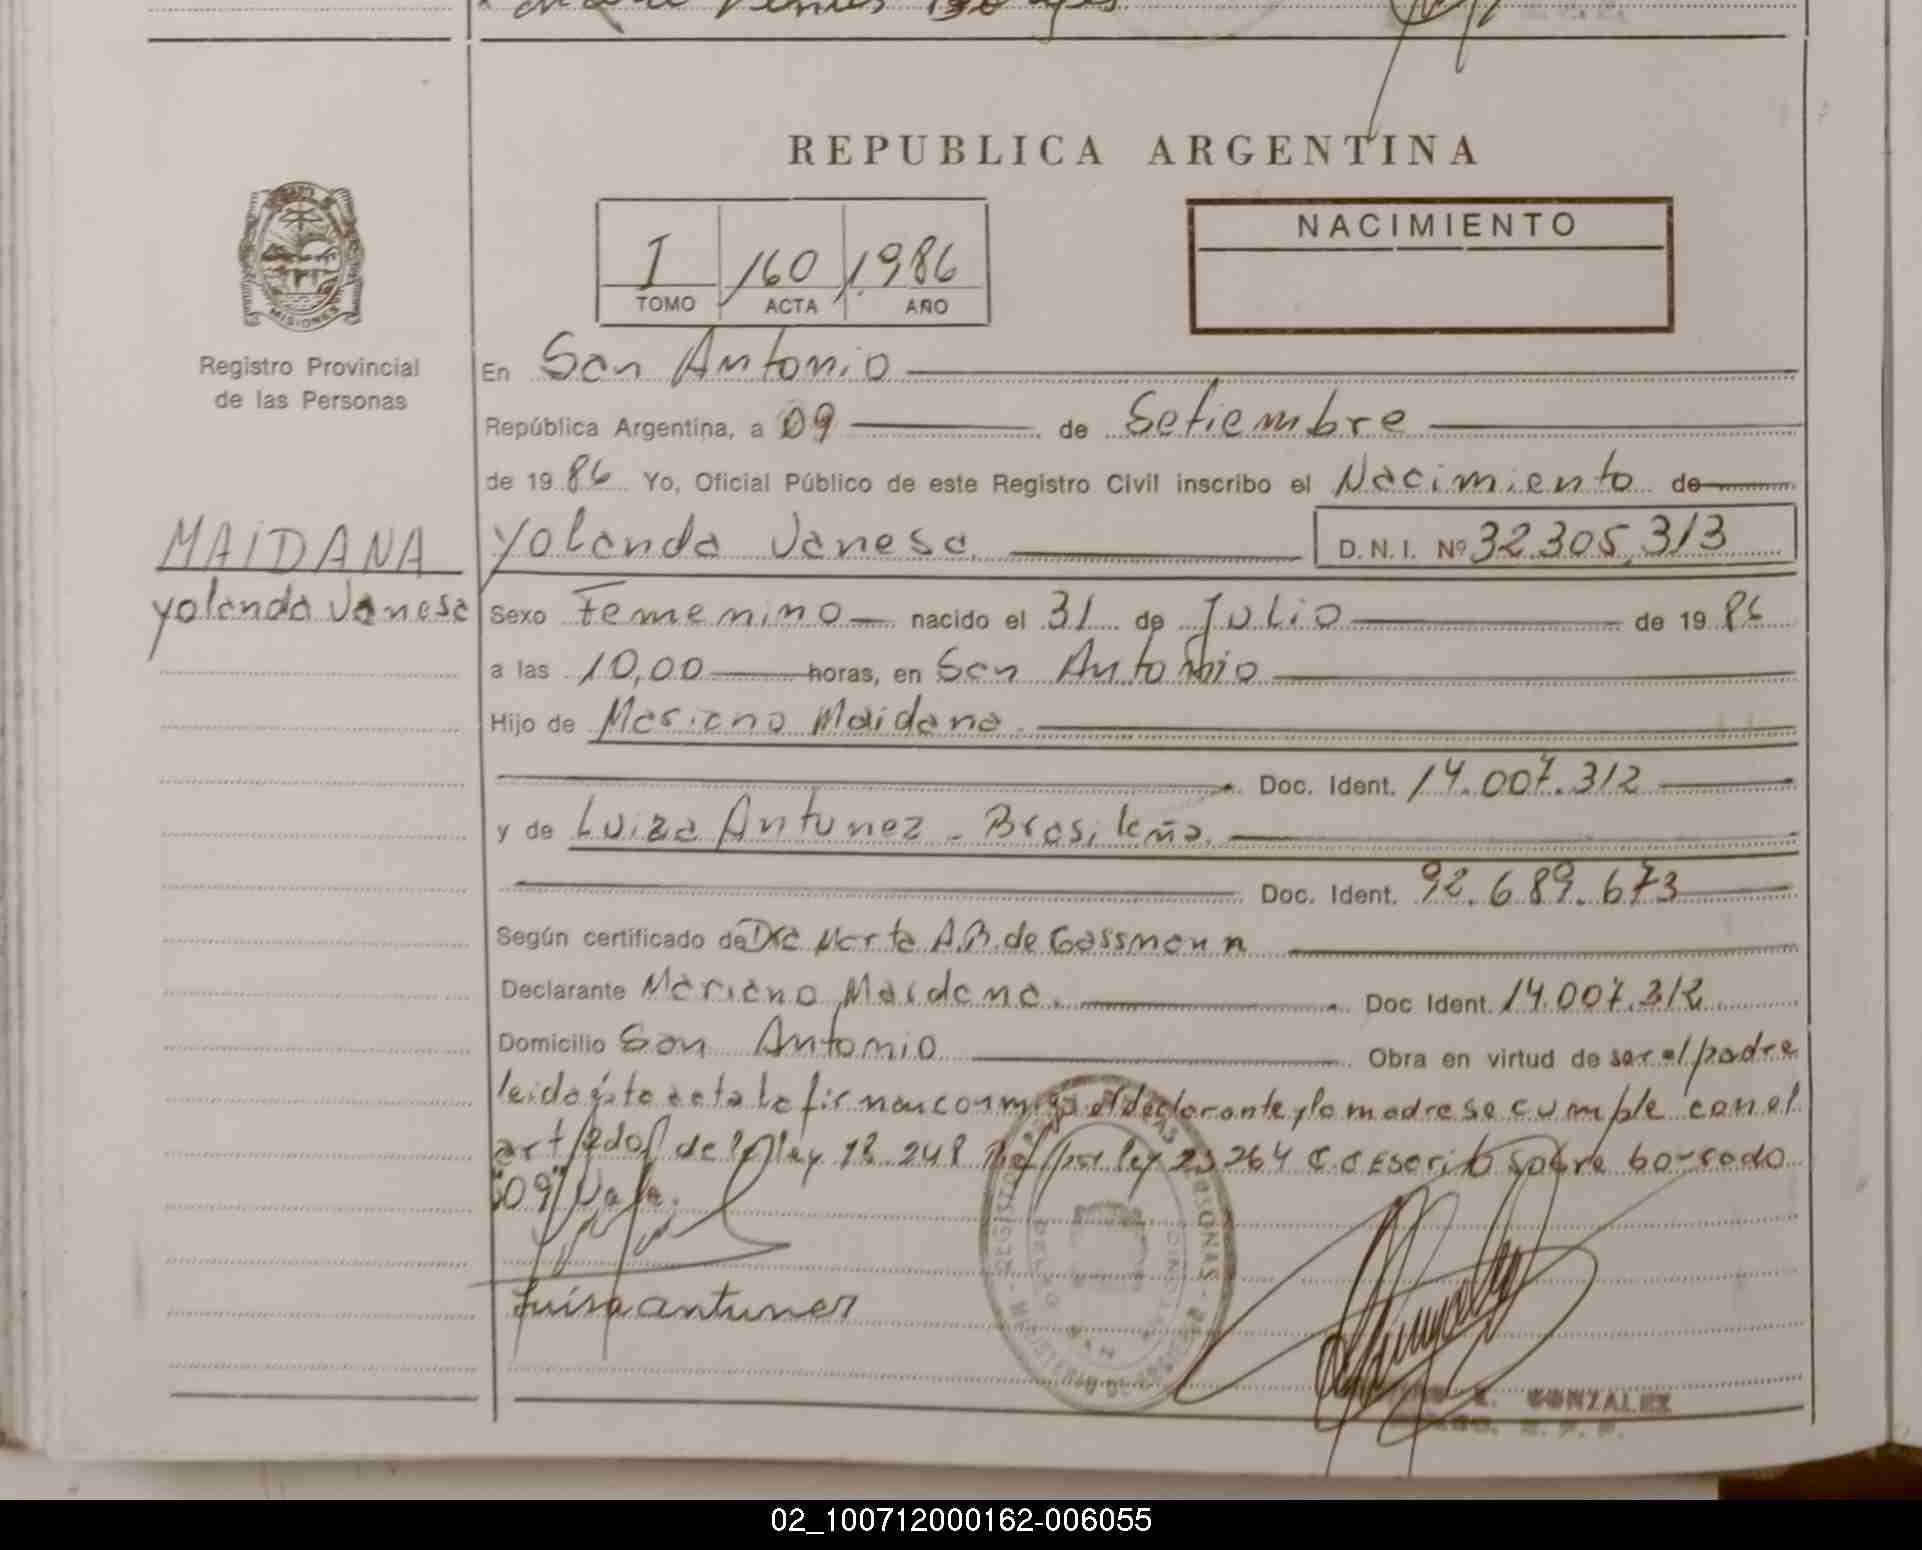 REPUBLICA ARGENTINA
NACIMIENTO
I 160 1986
TOMO ACTA AÑO
MISIONES
Registro Provincial
de las Personas
En San Antonio
República Argentina, a 09 de Setiembre
de 1986 Yo, Oficial Público de este Registro Civil inscribo el Nacimiento de
MAIDANA
Yolanda Vanesa
Yolanda Vanesa D.N.I. Nº 32.305.313
Sexo Femenino nacido el 31 de Julio de 1986
a las 10,00 horas, en San Antonio
Hijo de Mariano Maidana
Doc. Ident. 14.007.312
y de Luiza Antunez - Brasileña.
Doc. Ident. 92.689.673
Según certificado de Dra Marta A.B. de Gassmann
Declarante Mariano Maidana. Doc Ident. 14.007.312
Domicilio San Antonio Obra en virtud de ser el padre
leida ésta acta la firman conmigo el declarante y la madre se cumple con el
art de la ley 18.248 por ley 23264 Escrito sobre borrado
"09" Vale.
Luisa antunez
GONZALEZ
02_100712000162-006055